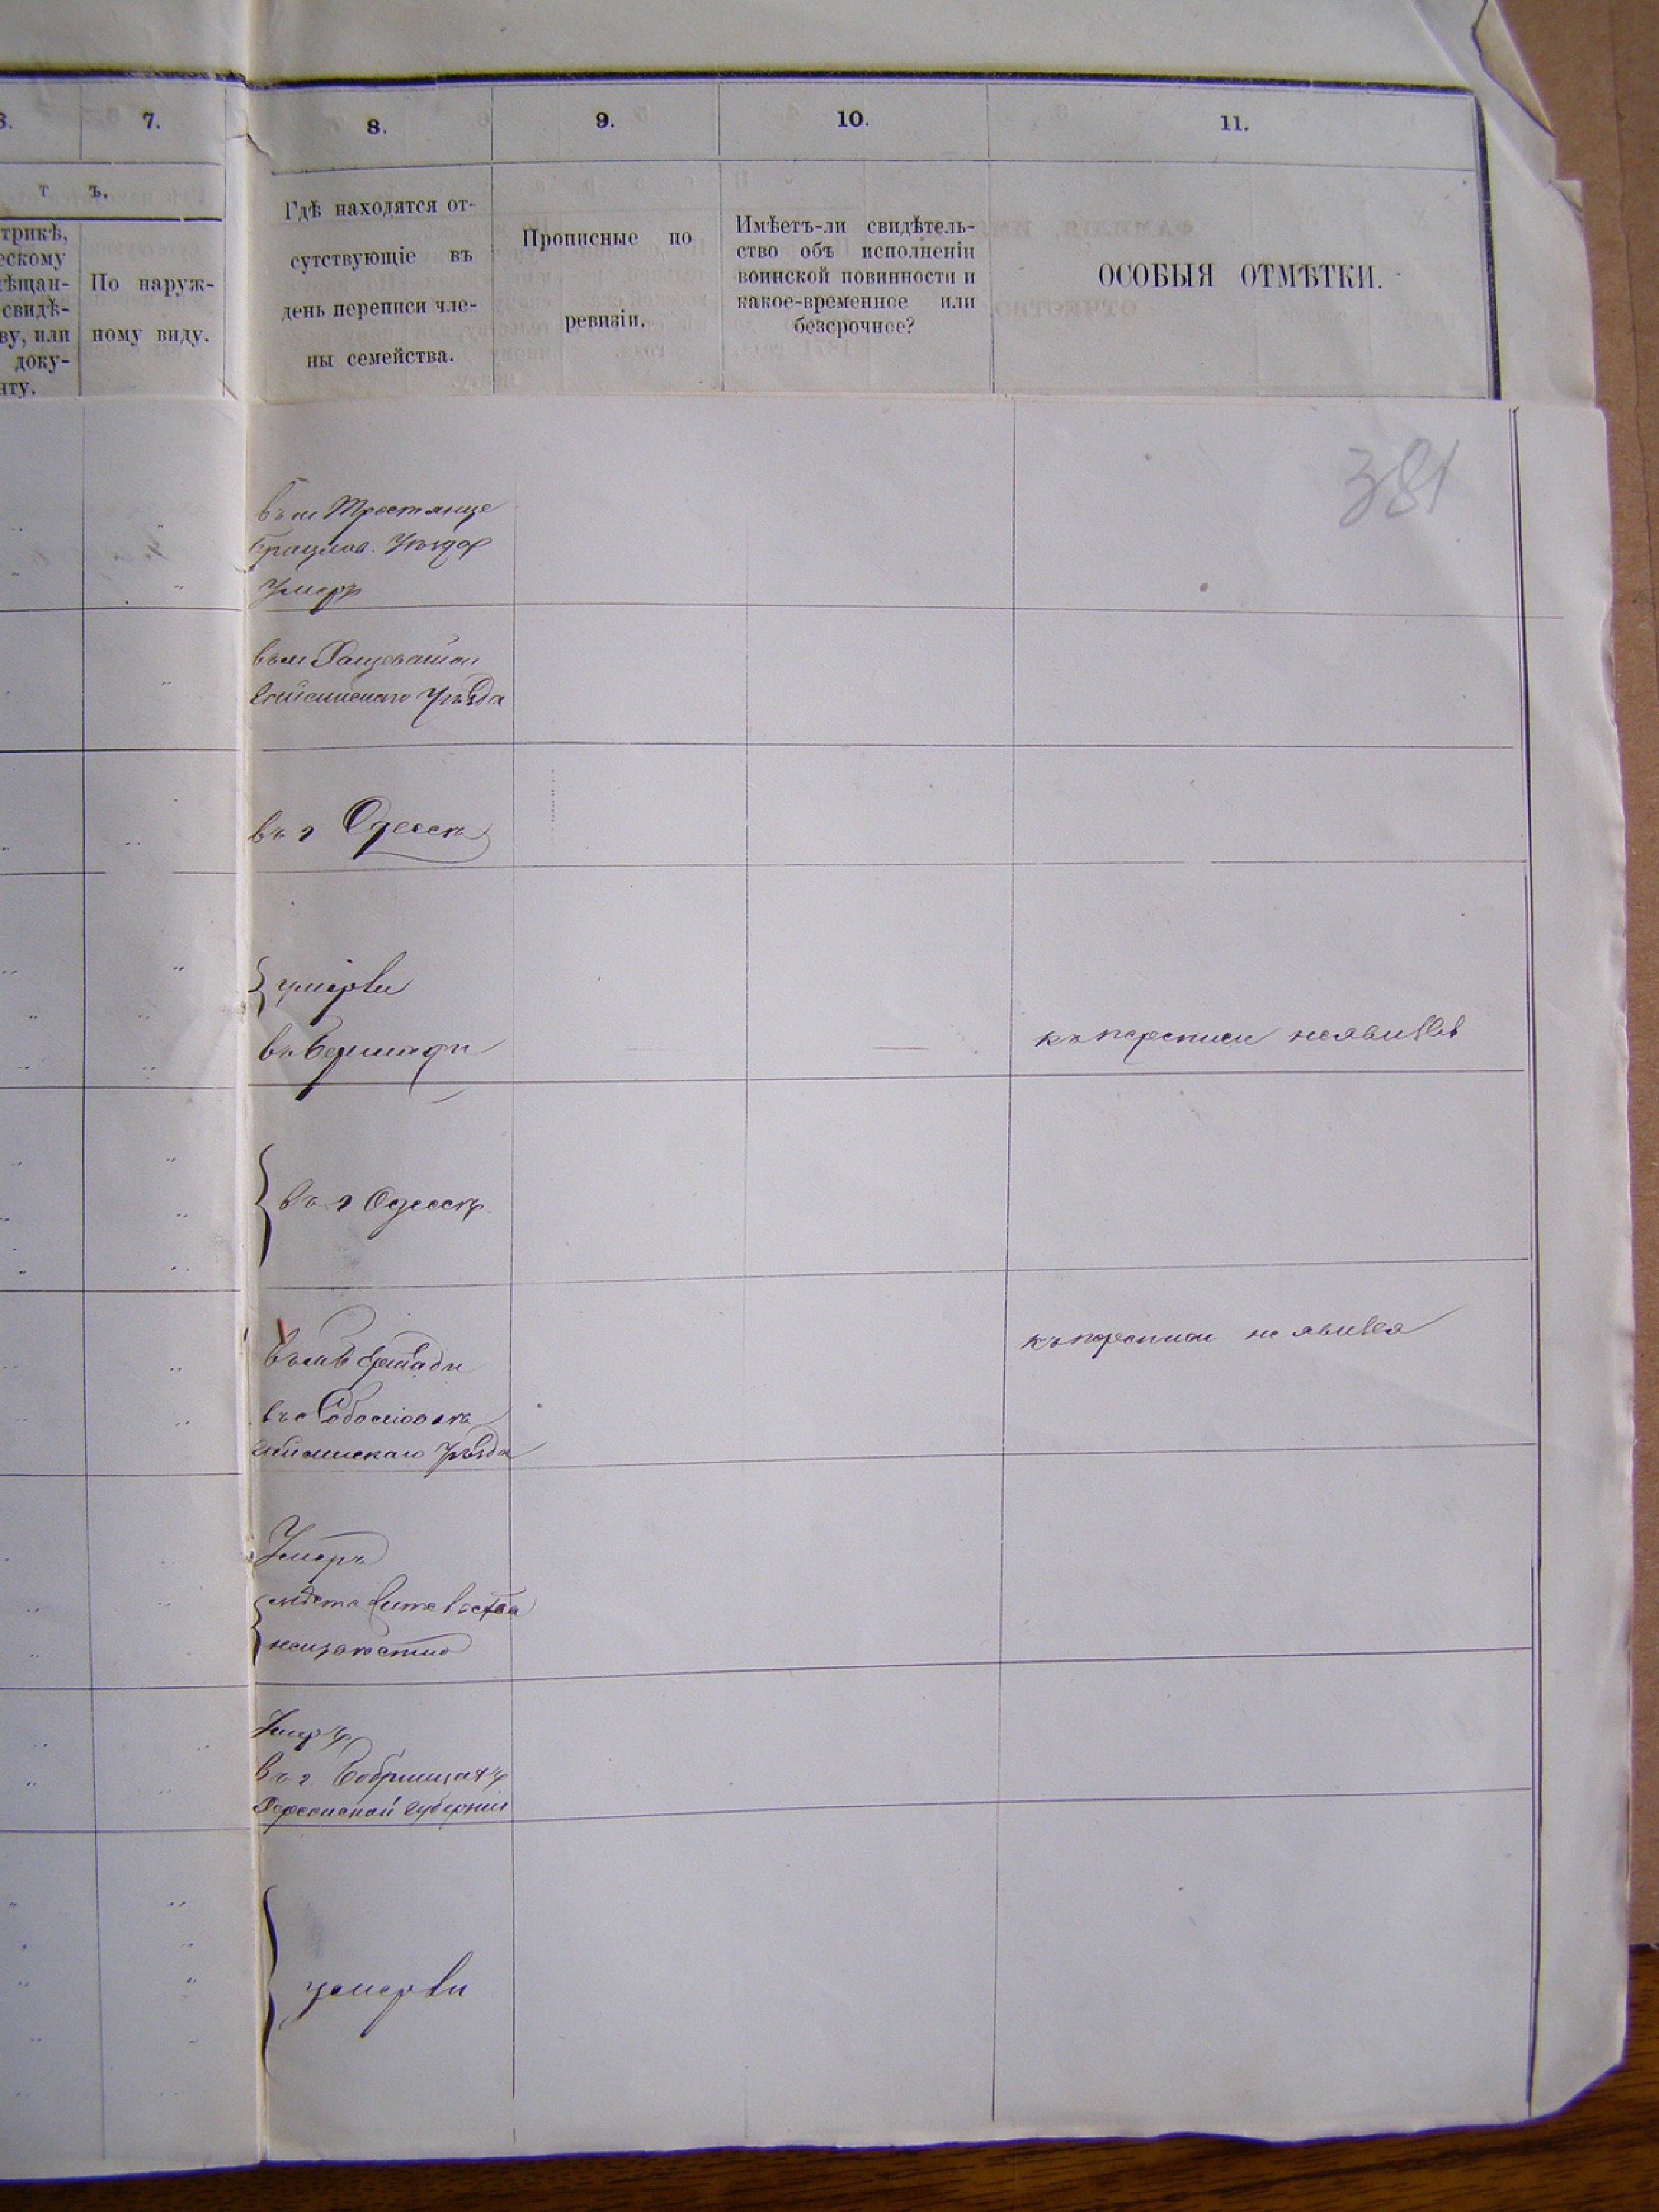 7.
8.
9.
10.
11.
т ъ.
трикѣ,
ескому
ѣщан-
свидѣ-
ву, или
доку-
нту.
По наруж-
ному виду.
Гдѣ находятся от-
сутствующіе въ
день переписи чле-
ны семейства.
Прописные по
ревизіи.
Имѣетъ-ли свидѣтель-
ство объ исполненіи
воинской повинности и
какое-временное или
безсрочное?
ОСОБЫЯ ОТМѢТКИ.
381
въ м Тростянце
Брацлав. Уѣзда
Умеръ
въ м Хащеватой
Гайсинскаго Уѣзда
въ г Одессѣ
умерли
въ Бершади
къ переписи не явился
въ г Одессѣ
въ м Бершади
къ переписи не явился
въ с
Гайсинскаго Уѣзда
Умеръ
мѣсто жительства
неизвестно
Умеръ
въ г. Бобринцахъ
Херсонской Губерніи
умерли